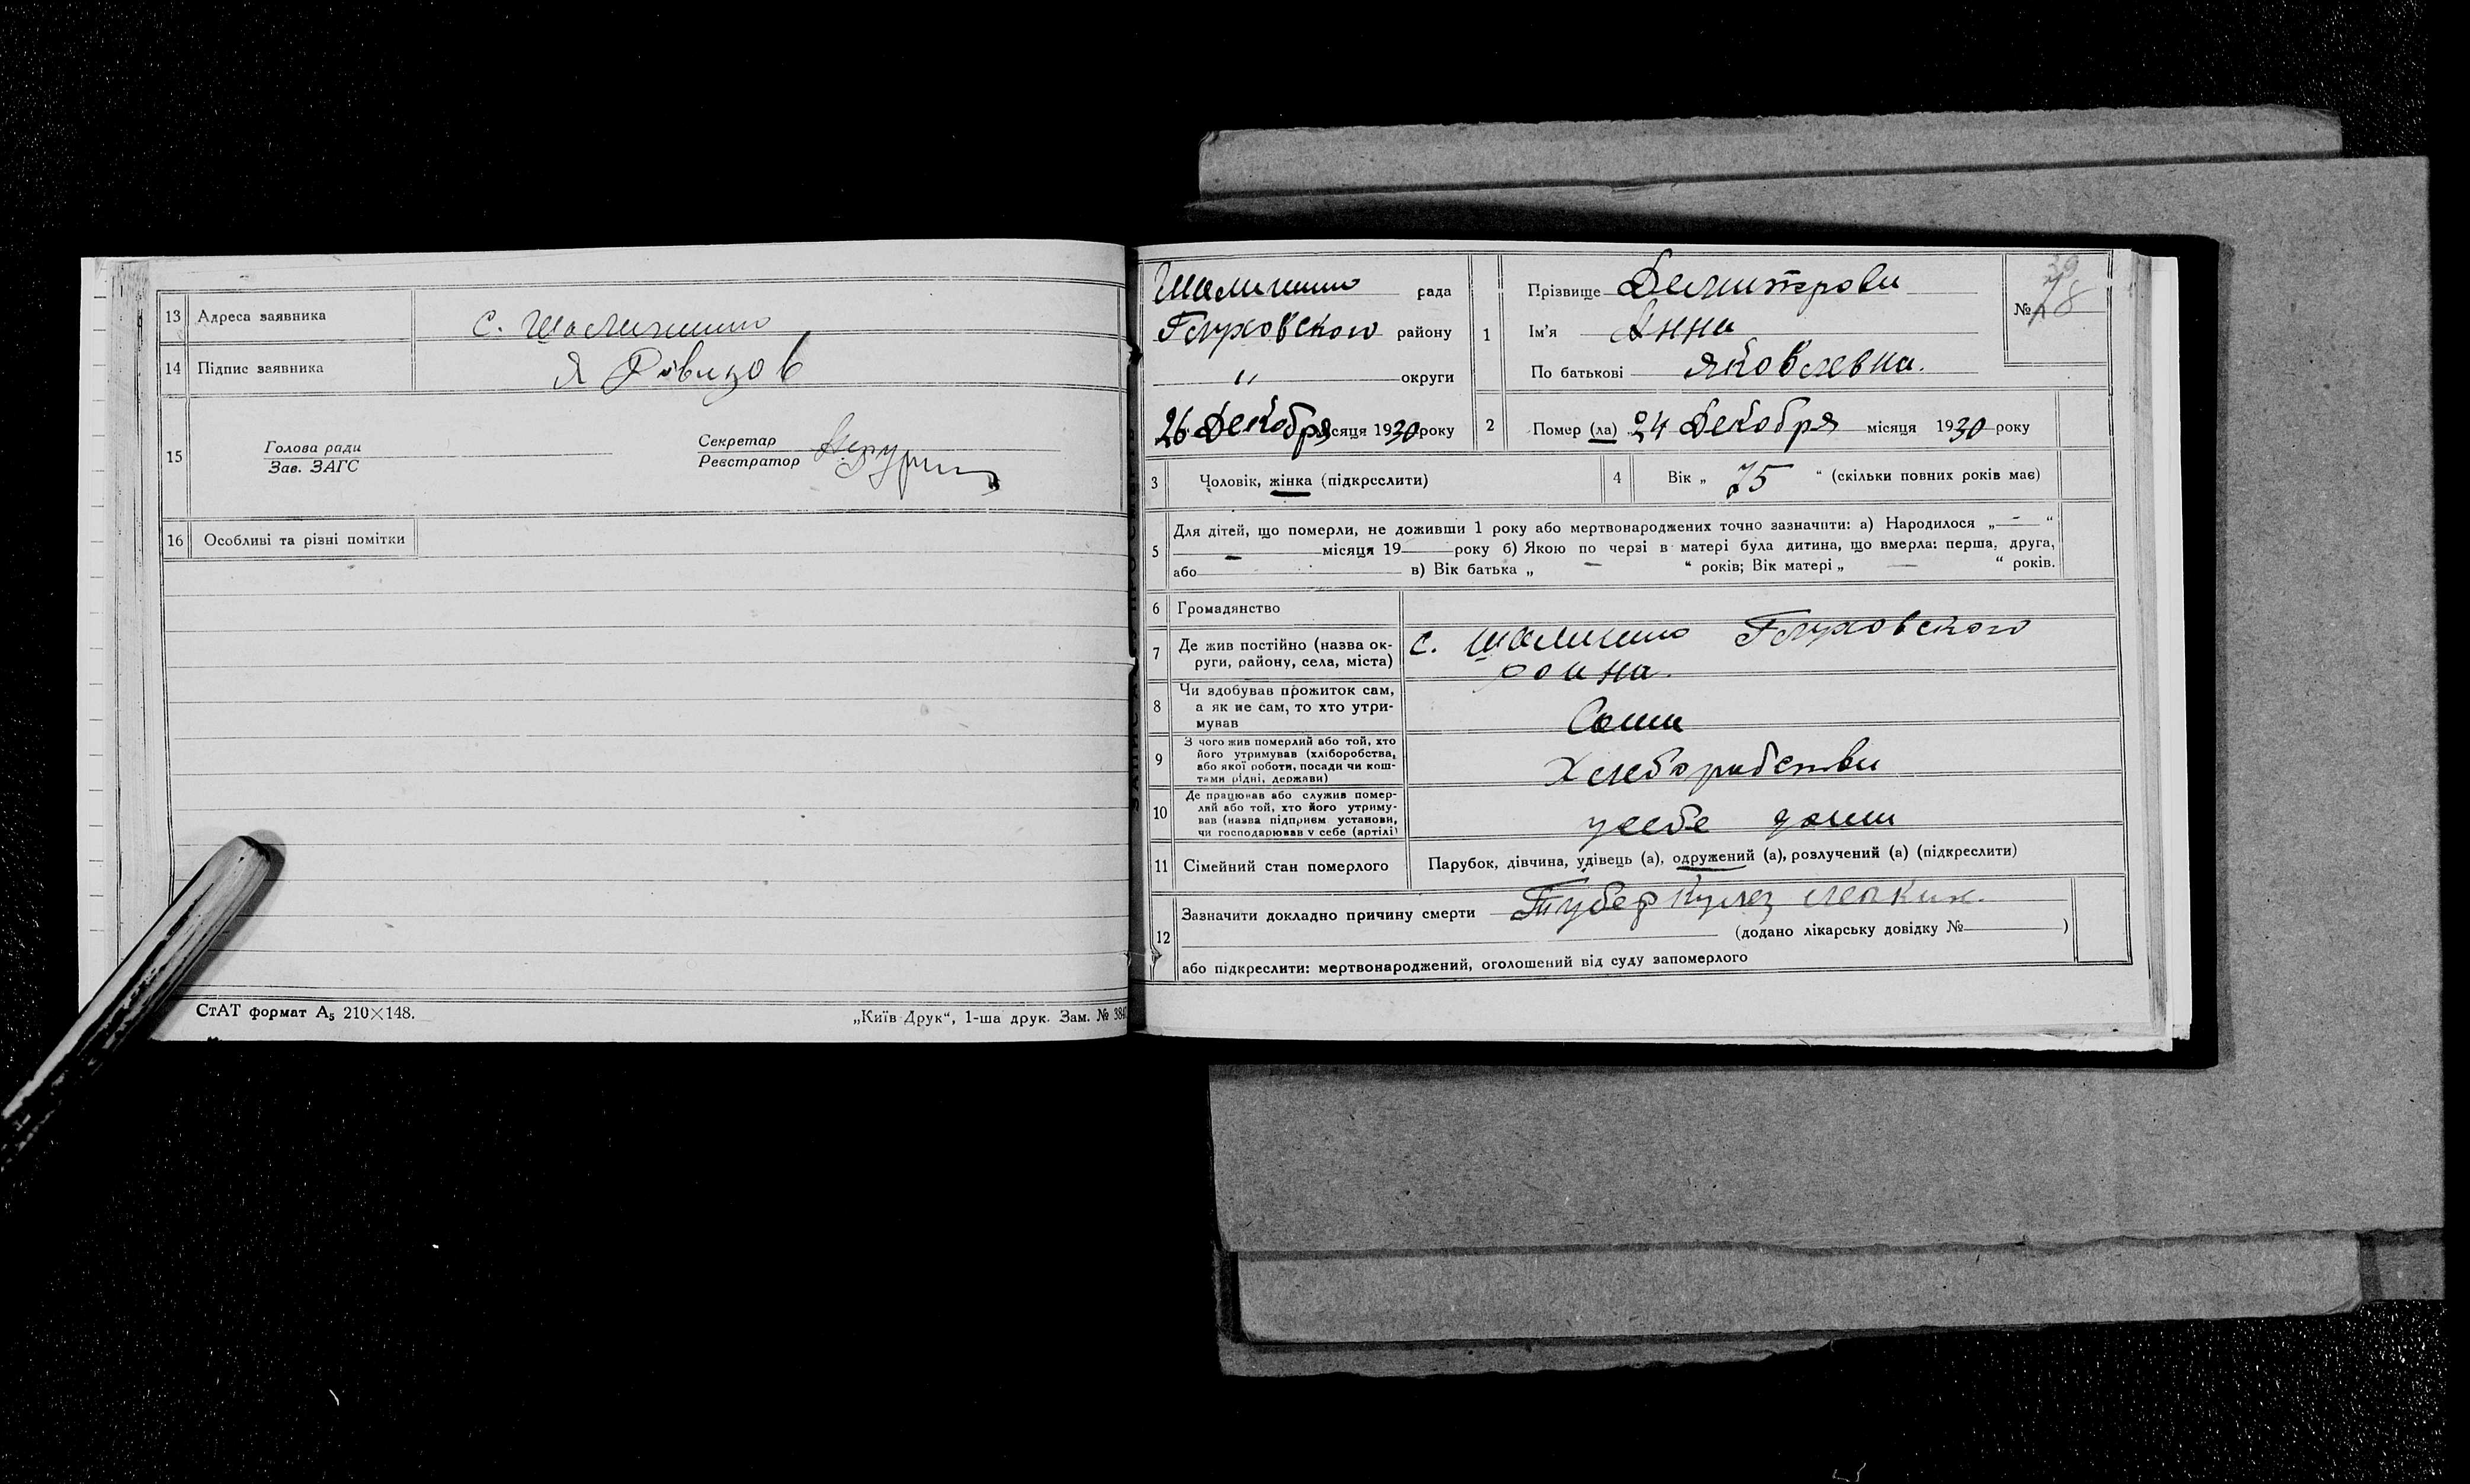 13 Адреса заявника с. Шалигино
14 Підпис заявника Я
15 Голова ради
Зав. ЗАГС
Секретар
Реєстратор
16 Особливі та різні помітки
СтАТ формат А5 210×148.
„Київ-Друк“, 1-ша друк. Зам. № 384
Шалигино рада
Глуховского району
" округи
26 Декобря місяця 1930 року
1 Прізвище Демитрова
Ім'я Анна
По батькові Яковлевна.
№ 78
2 Помер (ла) 24 Декобря місяця 1930 року
3 Чоловік, жінка (підкреслити)
4 Вік „ 75 “ (скільки повних років має)
5 Для дітей, що померли, не доживши 1 року або мертвонароджених точно зазначити: а) Народилося „ — “
— місяця 19 року б) Якою по черзі в матері була дитина, що вмерла: перша, друга,
або в) Вік батька „ — “ років; Вік матері „ — “ років.
6 Громадянство
7 Де жив постійно (назва ок-
руги, району, села, міста)
с. Шалигино Глуховского
роина.
8 Чи здобував прожиток сам,
а як не сам, то хто утри-
мував
Сама
9 З чого жив померлий або той, хто
його утримував (хліборобства,
або якої роботи, посади чи кош-
тами рідні, держави)
Хлеборобства
10 Де працював або служив помер-
лий або той, хто його утриму-
вав (назва підприєм установи,
чи господарював у себе (артілі)
усебе дома
11 Сімейний стан померлого Парубок, дівчина, удівець (а), одружений (а), розлучений (а) (підкреслити)
12 Зазначити докладно причину смерти Туберкулез легких.
(додано лікарську довідку № )
або підкреслити: мертвонароджений, оголошений від суду запомерлого